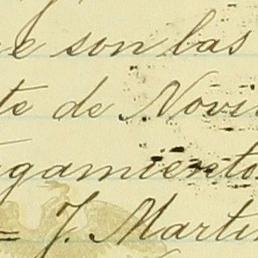 e son las
te de Novi
gamiento
= J. Martin